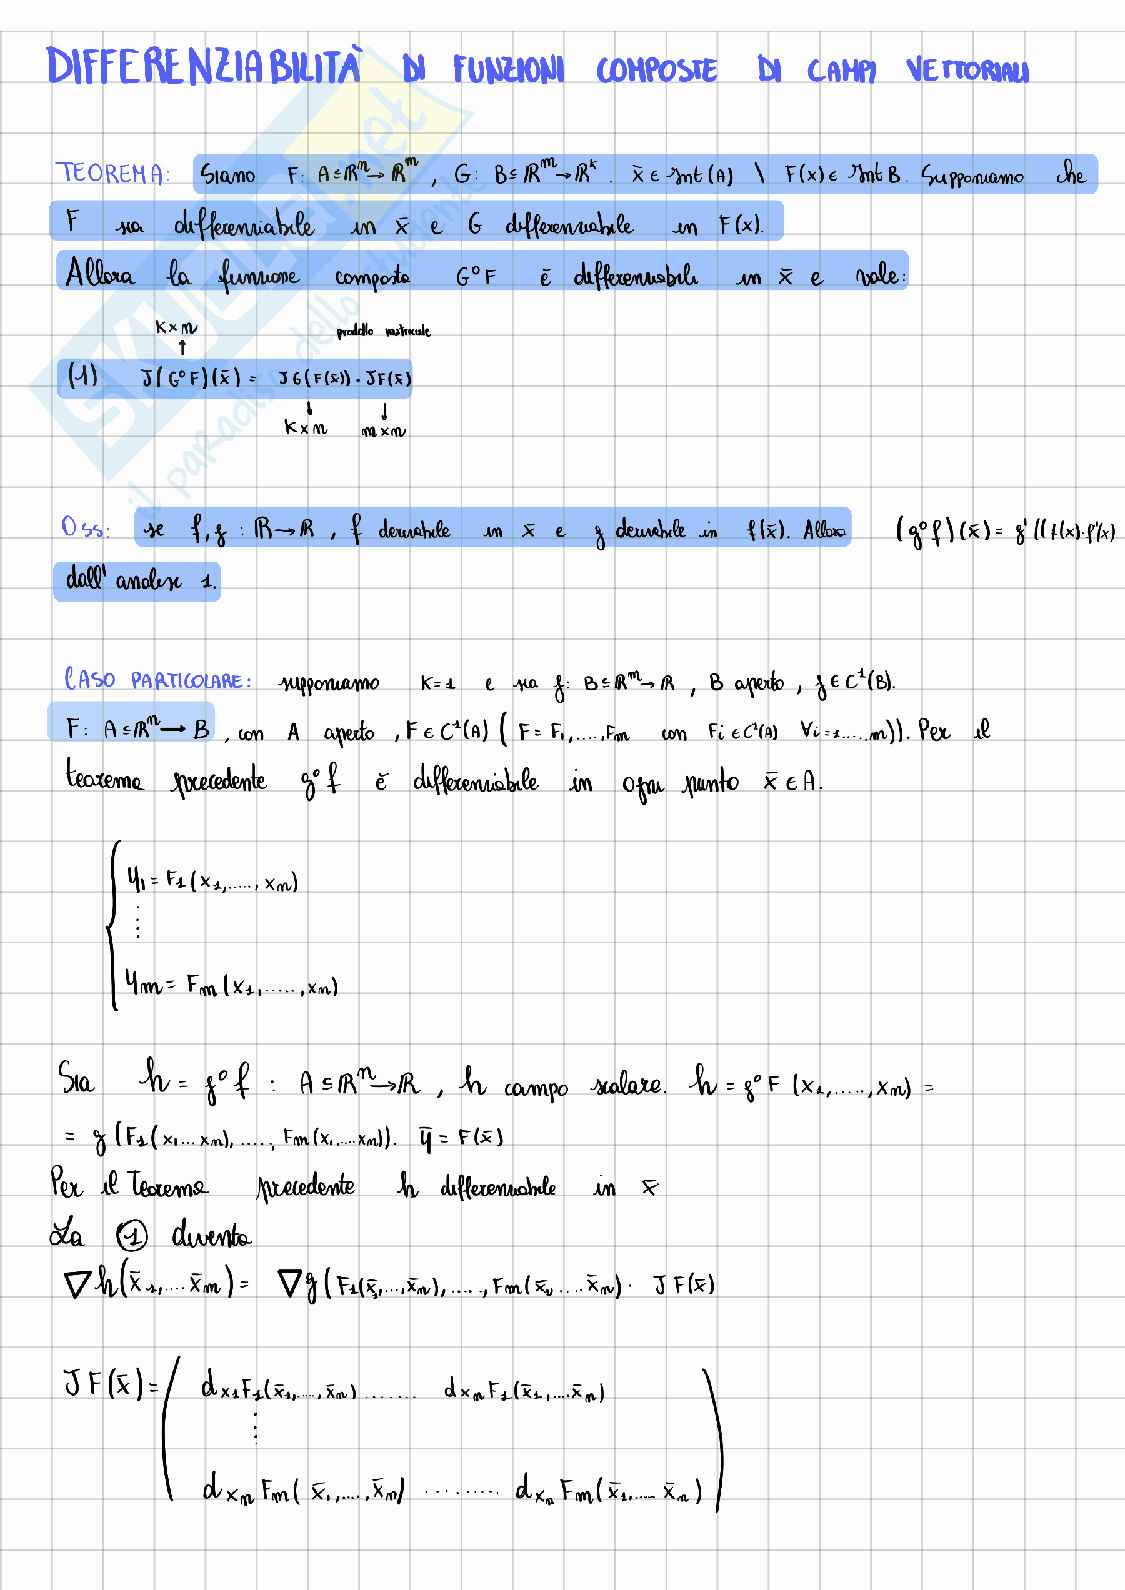 DIFFERENZIABILITÀ DI FUNZIONI COMPOSTE DI CAMPI VETTORIALI
TEOREMA: Siano F: A⊆ℝⁿ→ℝᵐ, G: B⊆ℝᵐ→ℝᵏ. x̄ ∈ Int(A) \ F(x) ∈ Int B. Supponiamo che
F sia differenziabile in x̄ e G differenziabile in F(x).
Allora la funzione composta G°F è differenziabile in x̄ e vale:
K×n prodotto matriciale
↑
(1) J(G°F)(x̄) = JG(F(x̄)) · JF(x̄)
↓ ↓
K×n m×n
Oss: se f,g : ℝ→ℝ, f derivabile in x̄ e g derivabile in f(x̄). Allora (g°f)(x̄) = g'((f(x)·f'(x)
dall'analisi 1.
CASO PARTICOLARE: supponiamo K=1 e sia g: B⊆ℝᵐ→ℝ, B aperto, g∈C¹(B).
F: A⊆ℝⁿ→B, con A aperto, F∈C¹(A) (F = F₁,....,Fm con Fi∈C¹(A) ∀i=1....,m)). Per il
teorema precedente g°f è differenziabile in ogni punto x̄ ∈ A.
y₁ = F₁(x₁,....., xn)
⋮
ym = Fm(x₁,.....,xn)
Sia h = g°f : A⊆ℝⁿ→ℝ, h campo scalare. h = g°F (x₁,.....,xn) =
= g(F₁(x₁...xn),....., Fm(x₁,...xn)). ȳ = F(x̄)
Per il Teorema precedente h differenziabile in x̄
La ① diventa
∇h(x̄₁,....x̄m) = ∇g(F₁(x̄₁,...,x̄n),....,Fm(x̄₁,....x̄n) · JF(x̄)
JF(x̄) = ( dx₁F₁(x̄₁,....,x̄n) ....... dxnF₁(x̄₁,....x̄n)
⋮
dxnFm(x̄₁,....,x̄n) ......... dxnFm(x̄₁,....x̄n) )
SKUOLA.net
il paradiso dello studente